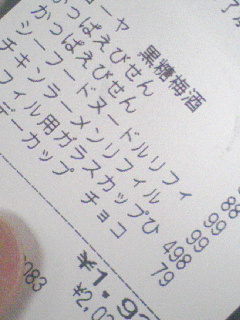 ーヤ 黒糖梅酒
かっぱえびせん
かっぱえびせん
シーフードヌードルリフィ
チキンラーメンリフィル 88
フィル用ガラスカップひ 99
デーカップ チョコ 99
498
79
¥1,9
¥2,0
083